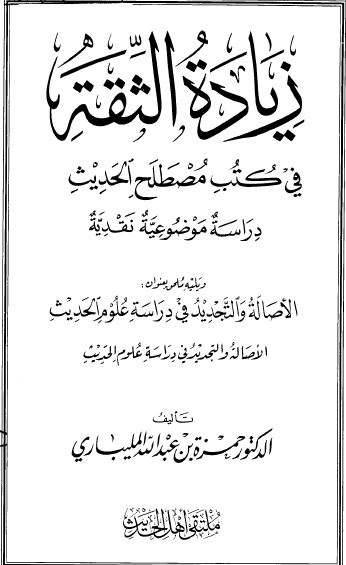 زِيَادَةُ الثِّقَةِ
فِي كُتُبِ مُصْطَلَحِ الحَدِيْثِ
دِرَاسَةٌ مَوْضُوعِيَّةٌ نَقْدِيَّةٌ
ويليه ملحق بعنوان:
الأصَالَةُ وَالتَّجْدِيْدُ فِي دِرَاسَةِ عُلُوْمِ الحَدِيْثِ
الأصالة والتجديد في دراسة علوم الحديث
تأليف
الدكتور حمزة بن عبد الله المليباري
ملتقى أهل الحديث